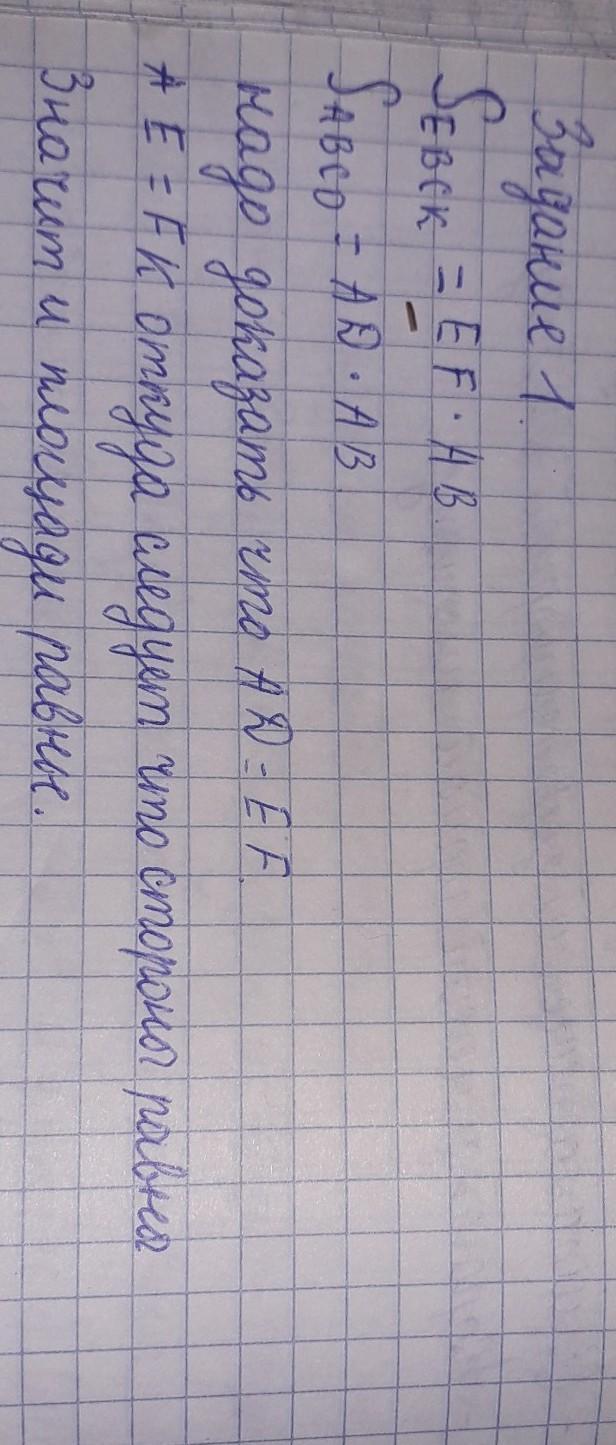 Задание 1
SEBCK = EF · AB.
SABCD = AD · AB.
надо доказать что AD = EF.
AE = FK откуда следует что стороны равны
Значит и площади равны.